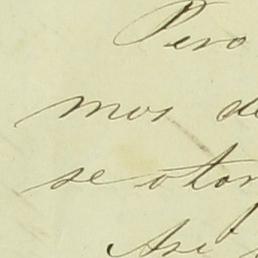 Pero
mos de
se otor
Así